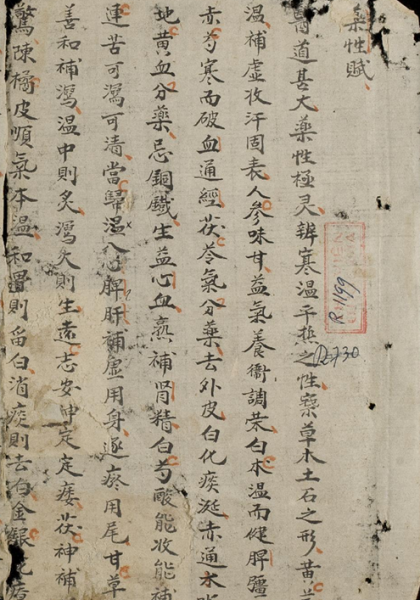 藥性賦
醫道甚大藥性極灵辨寒温平热之性察草木土石之形黄
温補虚收汗固表人參味甘益氣養衛調荣白本温而健脾
赤芍寒而破血通經茯苓氣分藥去外皮白化痰涎赤通水
地黄血分藥忌銅鐵生益心血熟補肾精白芍酸能收能補
連苦可瀉可清當歸温入心脾肝補虚用身逐瘀用尾甘草
善和補瀉温中則炙瀉火則生遠志安神定定痰茯神補
驚陳橘皮順氣本温和胃則留白消痰則去白金銀
R.1199